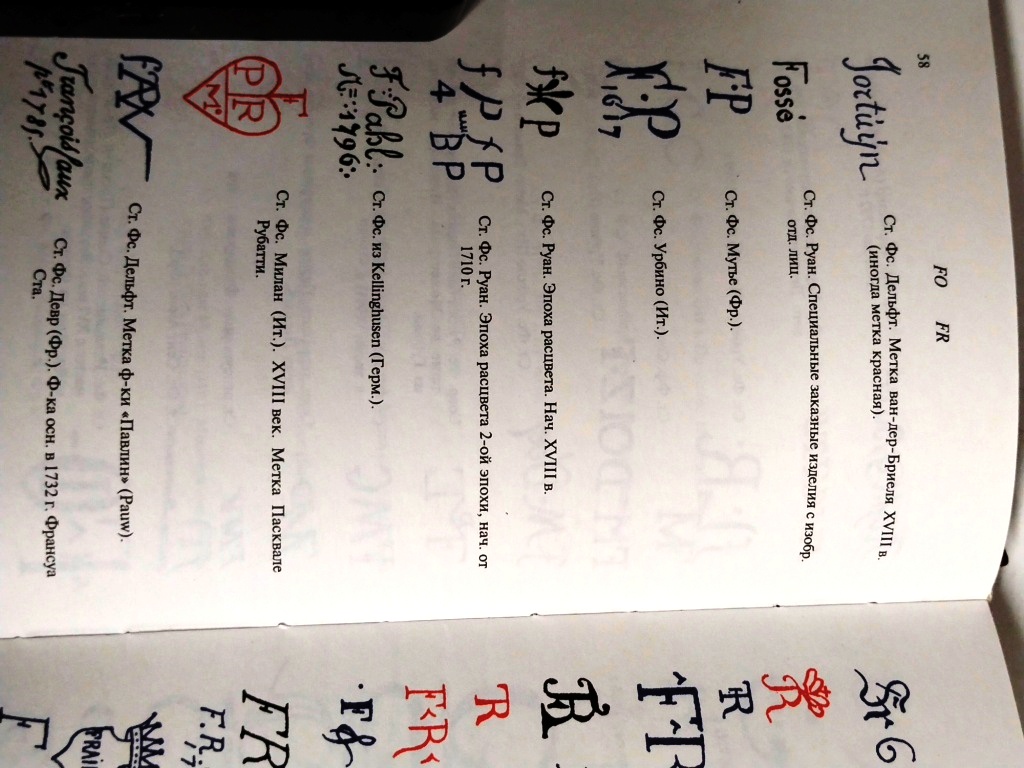 58
FO FR
Fortuÿn
Ст. Фс. Дельфт. Метка ван-дер-Бриеля XVIII в.
(иногда метка красная).
Fossé
Ст. Фс. Руан. Специальные заказные изделия с изобр.
отд. лиц.
F:P
Ст. Фс. Мутье (Фр.).
F.P
1617
Ст. Фс. Урбино (Ит.).
P
Ст. Фс. Руан. Эпоха расцвета. Нач. XVIII в.
f P f P
4 BP
Ст. Фс. Руан. Эпоха расцвета 2-ой эпохи, нач. от
1710 г.
F:Pahl:
1796:
Ст. Фс. из Kellinghusen (Герм.).
F
PR
M
Ст. Фс. Милан (Ит.). XVIII век. Метка Пасквале
Рубатти.
Ст. Фс. Дельфт. Метка ф-ки «Павлин» (Pauw).
1785.
Ст. Фс. Девр (Фр.). Ф-ка осн. в 1732 г. Франсуа
Ста.
R
R
FR
F.R.
F